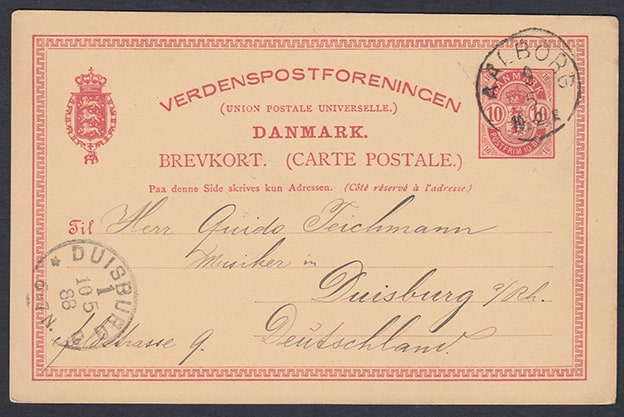 VERDENSPOSTFORENINGEN
(UNION POSTALE UNIVERSELLE.)
DANMARK.
BREVKORT. (CARTE POSTALE.)
Paa denne Side skrives kun Adressen. (Côté réservé à l'adresse.)
AALBORG
DANMARK
10 10
POSTFRIM
Til Herr Guido Teichmann
Musiker in
Duisburg a/Rh.
9.
Deutschland.
DUISBURG
1
10 5
88
N.